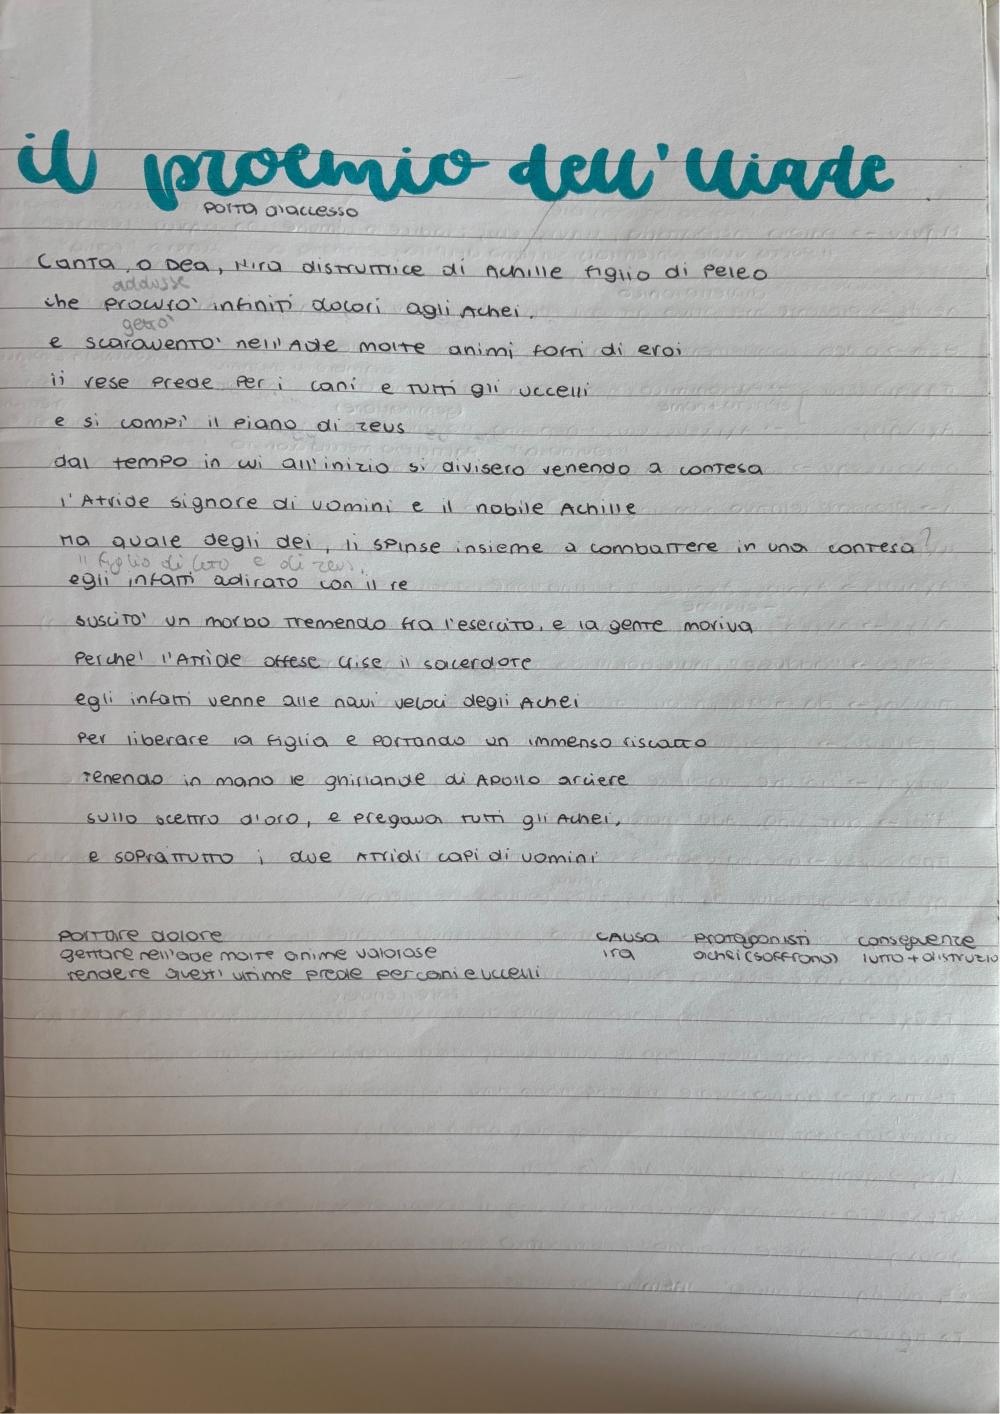 il proemio dell'Iliade
porta d'accesso
Canta, o Dea, l'ira distruttrice di Achille figlio di Peleo
addusse
che procurò infiniti dolori agli Achei,
gettò
e scaraventò nell'Ade molte animi forti di eroi
li rese prede per i cani e tutti gli uccelli
e si compì il piano di Zeus
dal tempo in cui all'inizio si divisero venendo a contesa
l'Atride signore di uomini e il nobile Achille
Ma quale degli dei, li spinse insieme a combattere in una contesa?
Il figlio di Leto e di Zeus,
egli infatti adirato con il re
suscitò un morbo tremendo fra l'esercito, e la gente moriva
perchè l'Atride offese Crise il sacerdote
egli infatti venne alle navi veloci degli Achei
per liberare la figlia e portando un immenso riscatto
tenendo in mano le ghirlande di Apollo arciere
sullo scettro d'oro, e pregava tutti gli Achei,
e soprattutto i due Atridi capi di uomini
portare dolore causa protagonisti conseguenze
gettare nell'ade molte anime valorose ira achei (soffrono) lutto + distruzio
rendere questi ultime prede per cani e uccelli